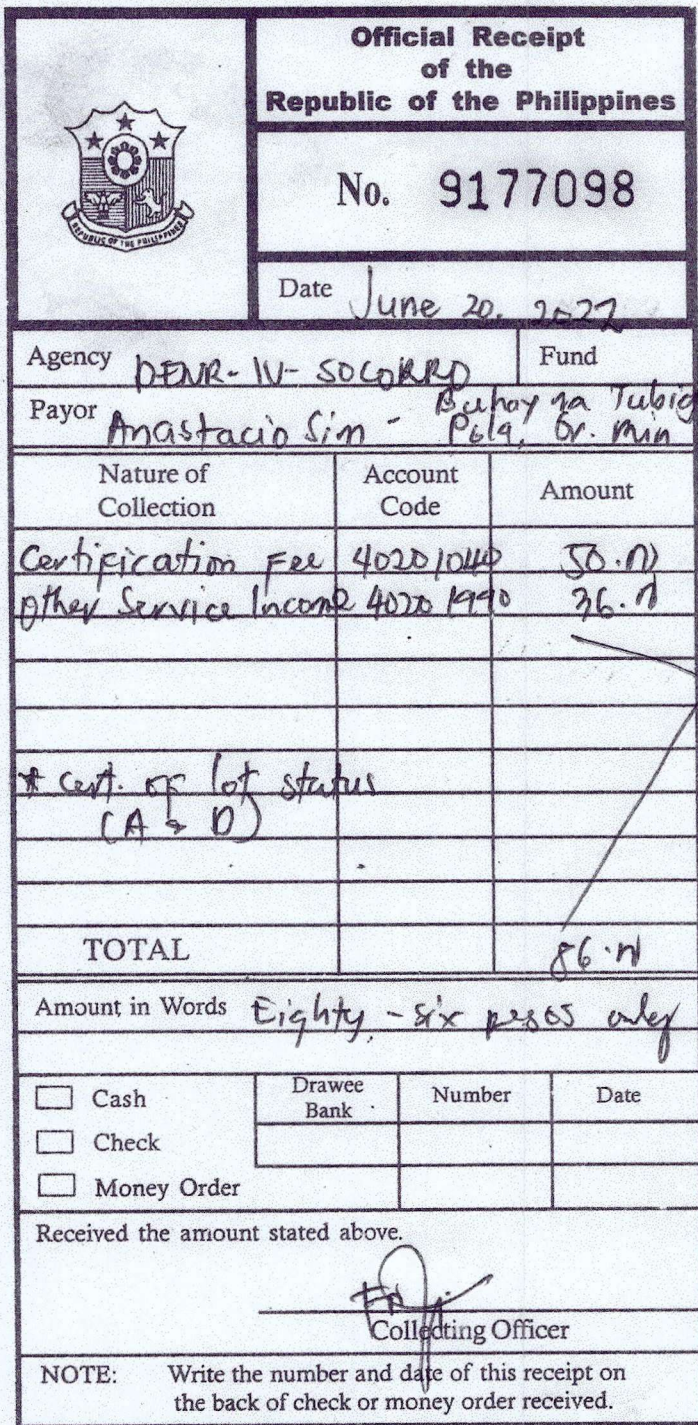 Official Receipt
of the
Republic of the Philippines
REPUBLIC OF THE PHILIPPINES
No. 9177098
Date June 20, 2022
Agency DENR-IV-SOCORRO Fund
Payor Anastacio Sim - Buhay na Tubig
Pola, Or. Min
Nature of Collection Account Code Amount
Certification Fee 40201040 50.00
Other Service Income 40201990 36.00
* cert. of lot status
(A & D)
TOTAL 86.00
Amount in Words Eighty-six pesos only
Cash Drawee Bank Number Date
Check
Money Order
Received the amount stated above.
Collecting Officer
NOTE: Write the number and date of this receipt on
the back of check or money order received.